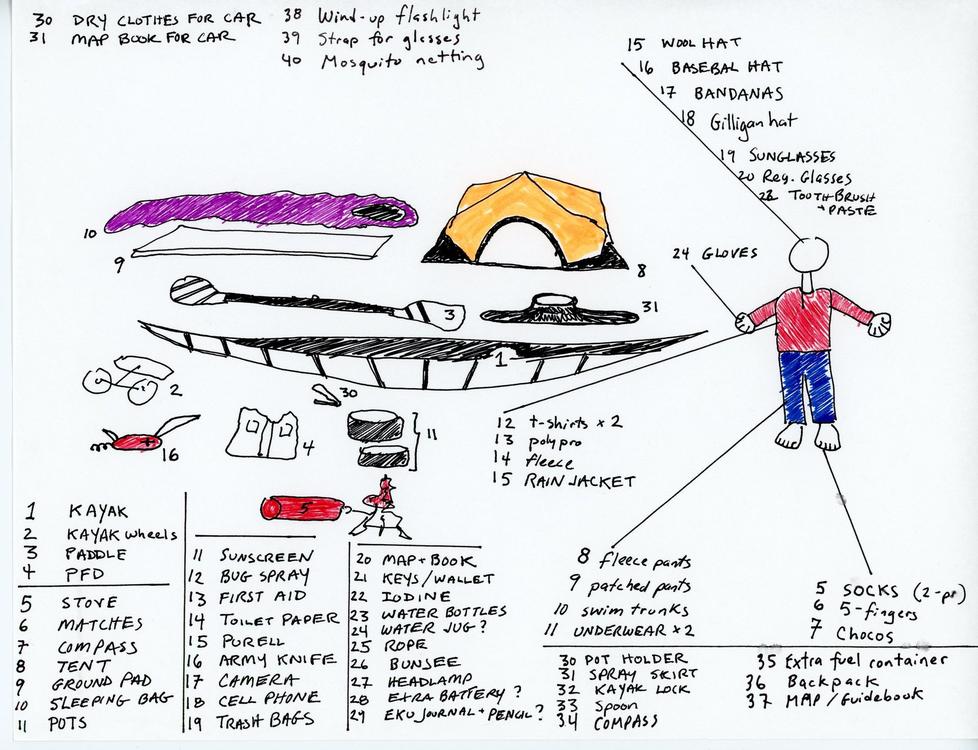 30 DRY CLOTHES FOR CAR
31 MAP BOOK FOR CAR
38 Wind-up flashlight
39 Strap for glasses
40 Mosquito netting
15 WOOL HAT
16 BASEBAL HAT
17 BANDANAS
18 Gilligan hat
19 SUNGLASSES
20 Reg. Glasses
22 TOOTH BRUSH
+ PASTE
24 GLOVES
10
9
8
3
31
1
2
30
16
4
11
5
12 t-shirts x 2
13 polypro
14 fleece
15 RAIN JACKET
8 fleece pants
9 patched pants
10 swim trunks
11 UNDERWEAR x 2
5 SOCKS (2-pr)
6 5-fingers
7 Chocos
1 KAYAK
2 KAYAK wheels
3 PADDLE
4 PFD
5 STOVE
6 MATCHES
7 COMPASS
8 TENT
9 GROUND PAD
10 SLEEPING BAG
11 POTS
11 SUNSCREEN
12 BUG SPRAY
13 FIRST AID
14 TOILET PAPER
15 PURELL
16 ARMY KNIFE
17 CAMERA
18 CELL PHONE
19 TRASH BAGS
20 MAP + BOOK
21 KEYS/WALLET
22 IODINE
23 WATER BOTTLES
24 WATER JUG?
25 ROPE
26 BUNJEE
27 HEADLAMP
28 EXTRA BATTERY?
29 EKU JOURNAL + PENCIL?
30 POT HOLDER
31 SPRAY SKIRT
32 KAYAK LOCK
33 Spoon
34 COMPASS
35 Extra fuel container
36 Backpack
37 MAP / Guidebook